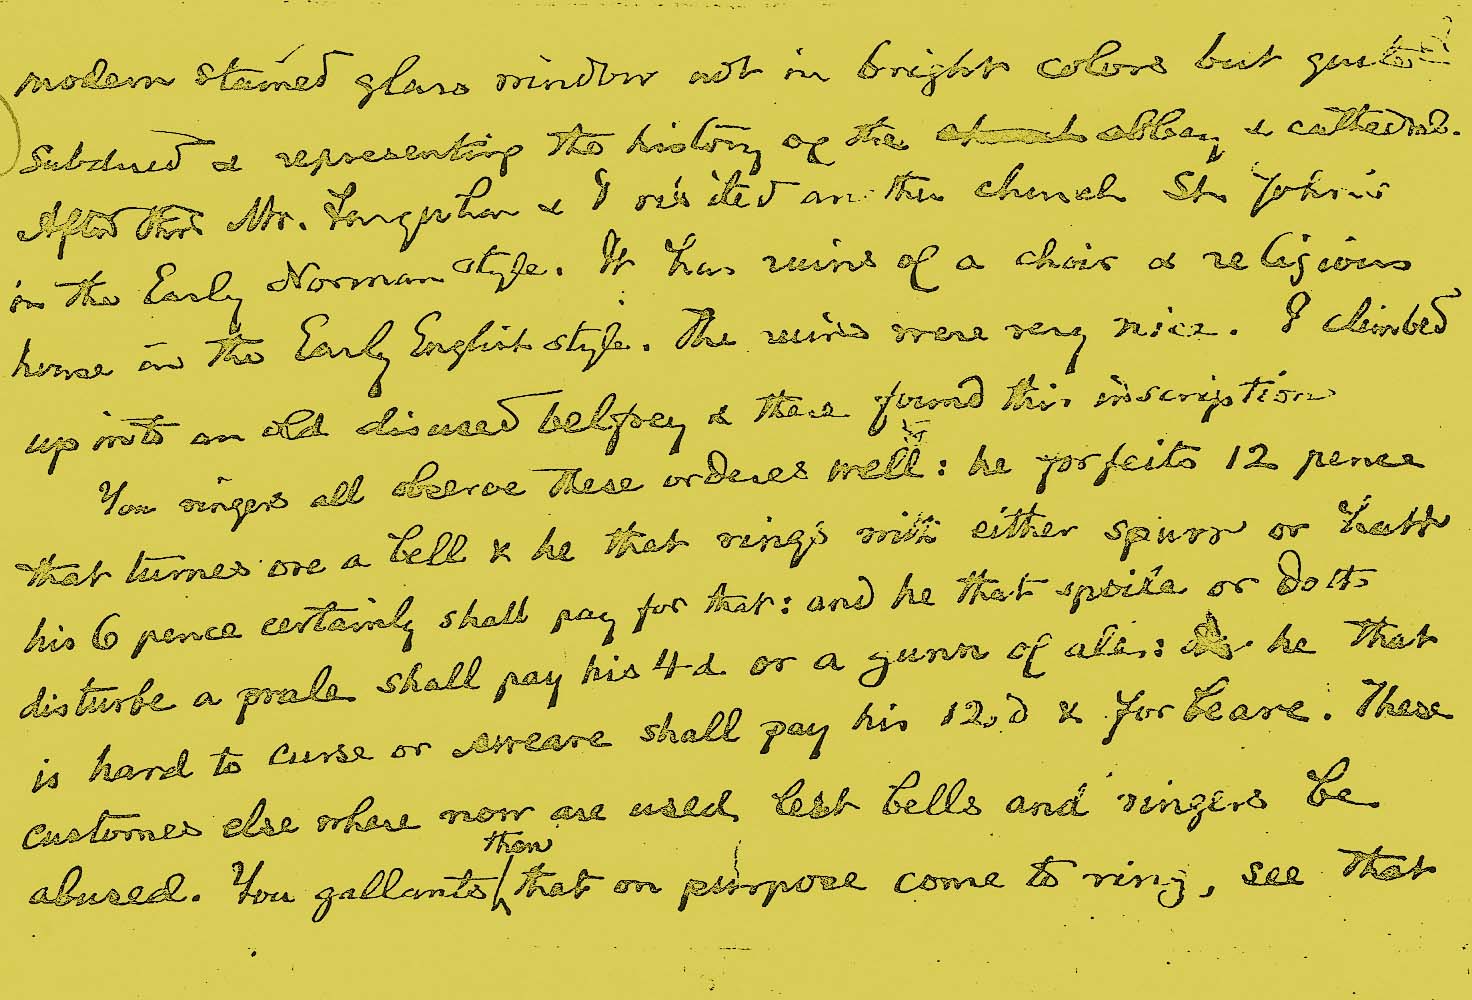 modern stained glass window not in bright colors but quite
subdued & representing the history of the church abbey & cathedral.
After this Mr. & I visited an the church St John's
in the Early Norman style. It has ruins of a choir & religious
house in the Early English style. The ruins were very nice. I climbed
up into an old disused belfrey & there found this inscription
You ringers all observe these orderes well: he forfeits 12 pence
that turnes ore a bell & he that rings with either spurr or hatt
his 6 pence certainly shall pay for that: and he that spoile or doth
disturbe a peale shall pay his 4d or a gunn of ale: he that
is hard to curse or sweare shall pay his 12d & forbeare. These
customes elsewhere now are used lest bells and ringers be
abused. You gallants then that on purpose come to ring, see that